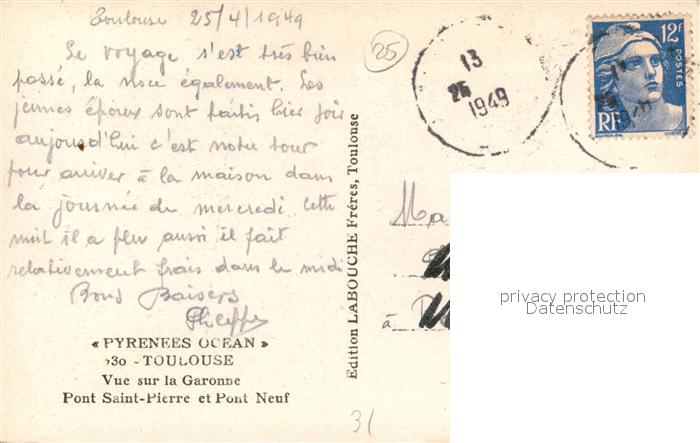 Toulouse 25/4/1949
Le voyage s'est très bien
passé, la noce également. Les
jeunes époux sont partis hier soir
aujourd'hui c'est notre tour
pour arriver à la maison dans
la journée de mercredi. Cette
nuit il a plu aussi il fait
relativement frais dans le midi
Bons Baisers
Philippe
« PYRENEES OCEAN »
30 - TOULOUSE
Vue sur la Garonne
Pont Saint-Pierre et Pont Neuf
Edition LABOUCHE Frères, Toulouse
25
13
26
1949
12F
POSTES
RF
Ma
à
privacy protection
Datenschutz
31